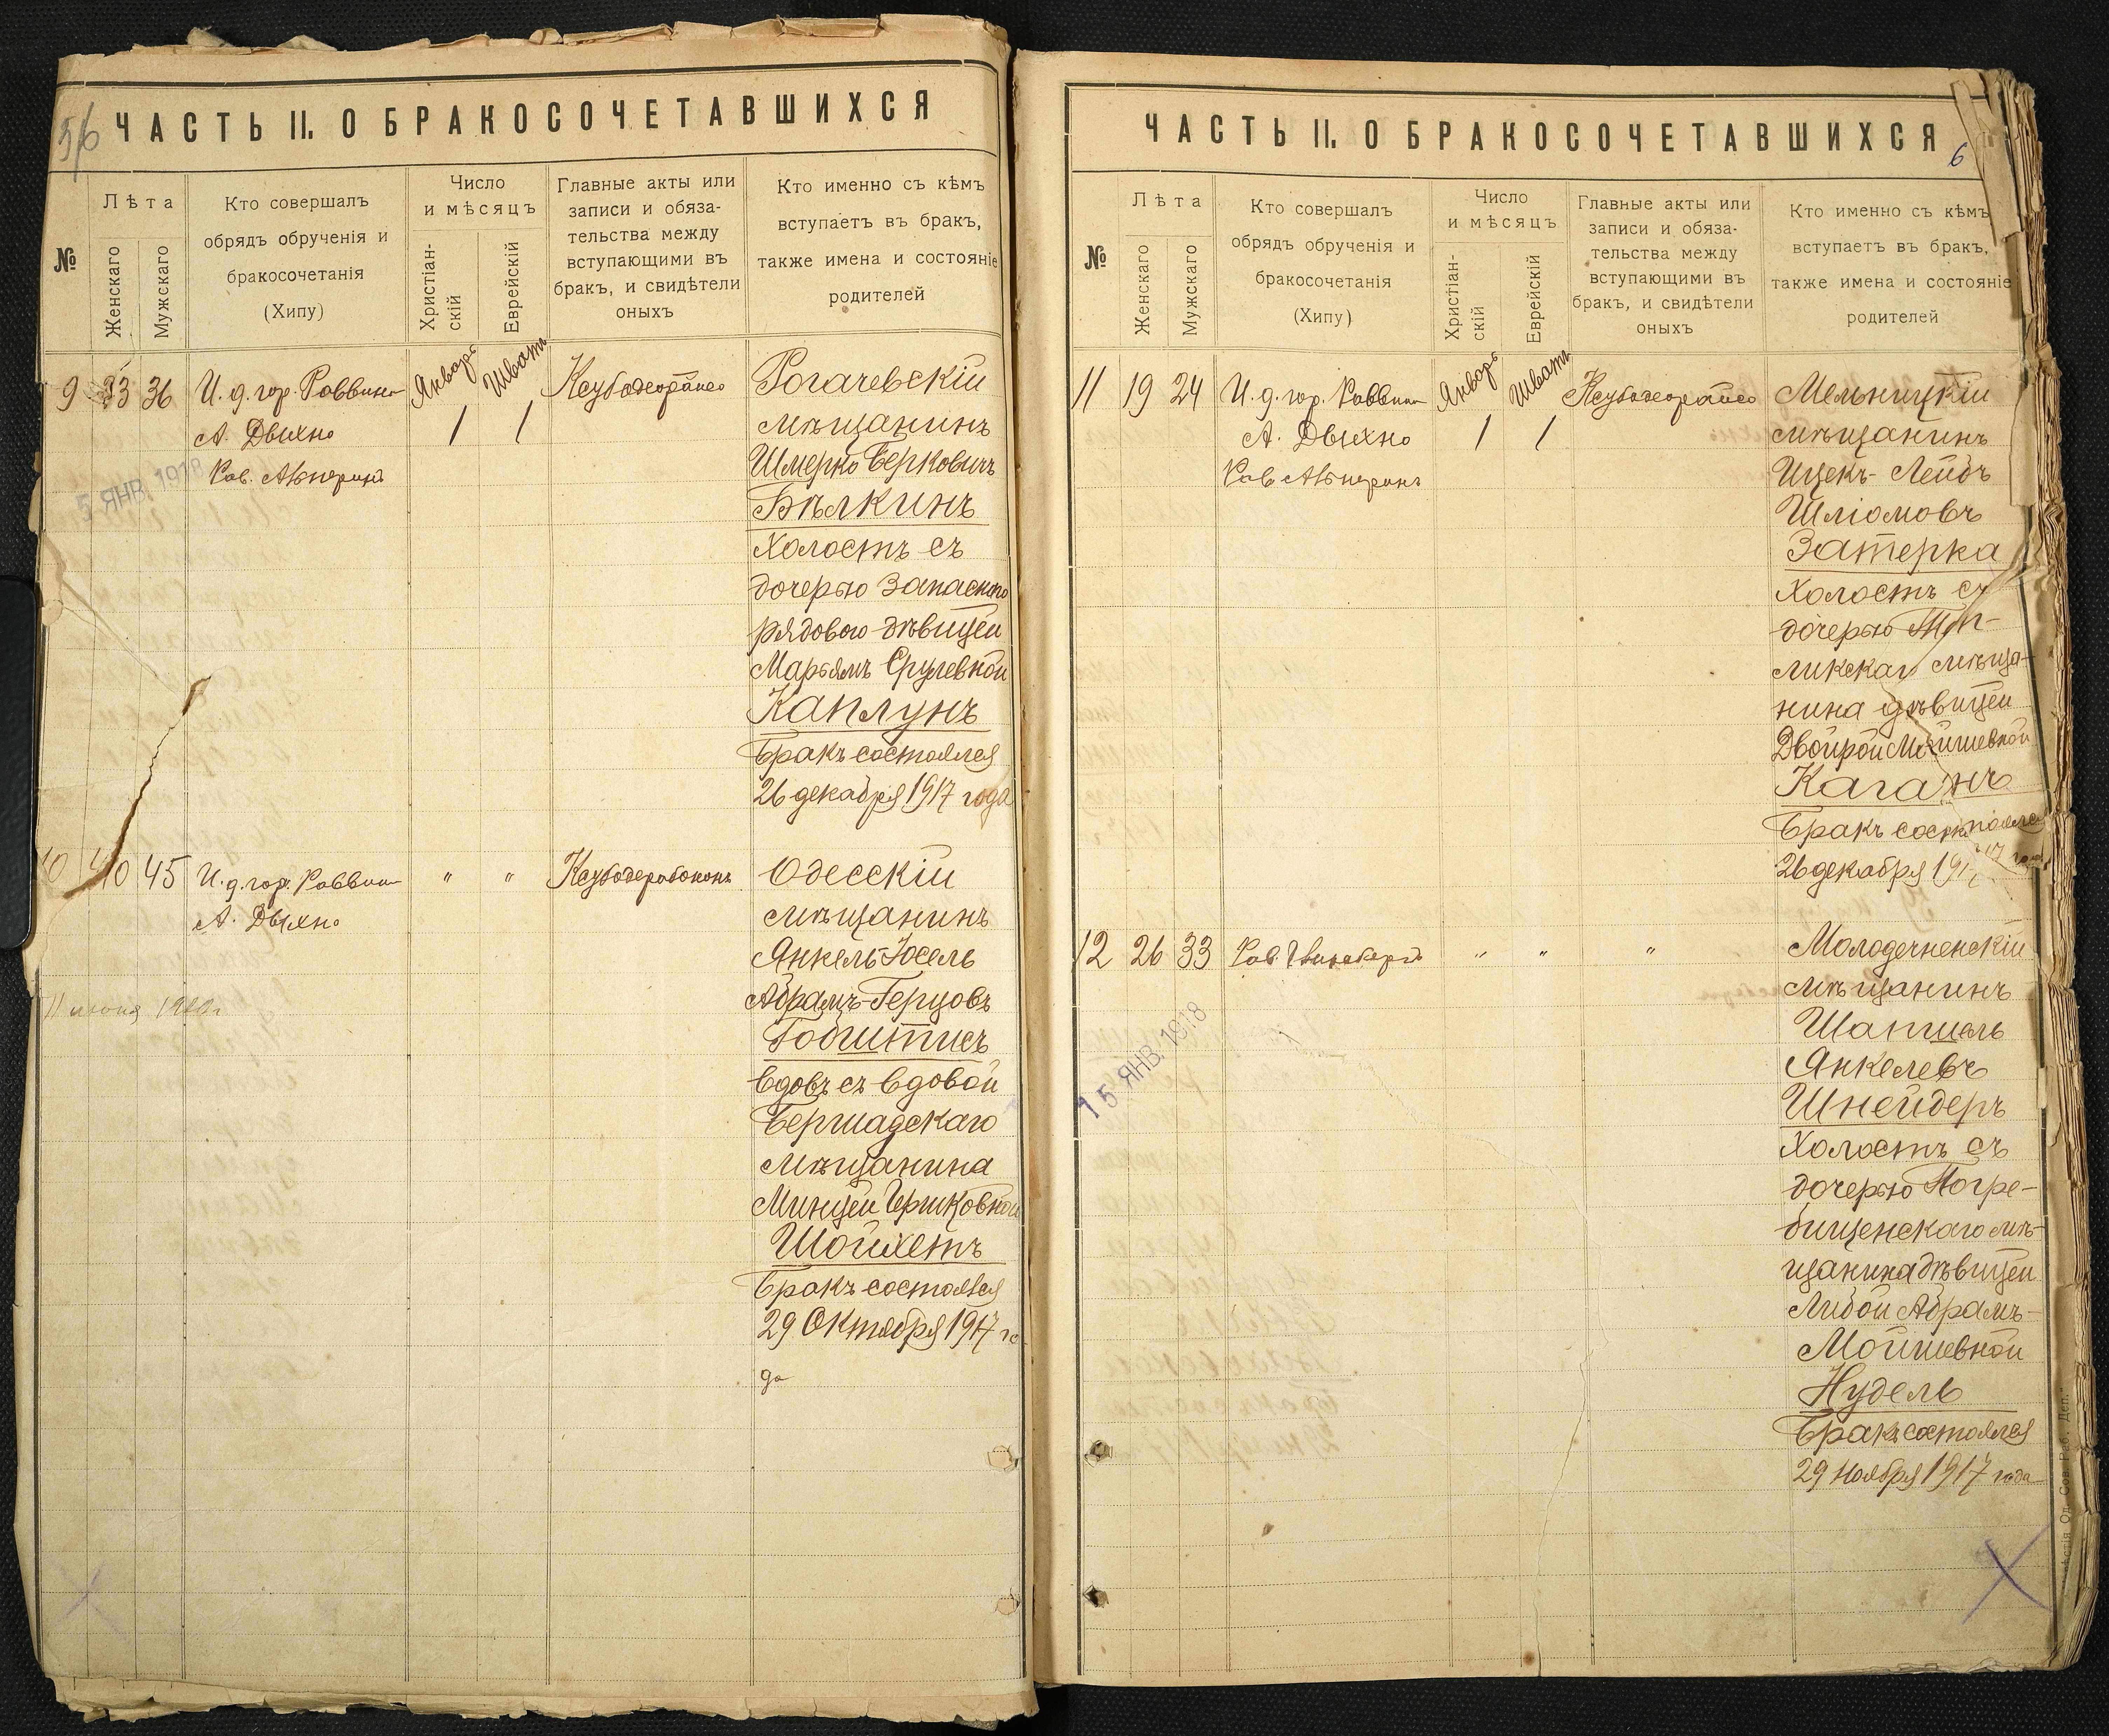 56
ЧАСТЬ II. О БРАКОСОЧЕТАВШИХСЯ
№
Лѣта
Женскаго
Мужскаго
Кто совершалъ
обрядъ обрученія и
бракосочетанія
(Хипу)
Число
и мѣсяцъ
Христіан-
скій
Еврейскій
Главные акты или
записи и обяза-
тельства между
вступающими въ
бракъ, и свидѣтели
оныхъ
Кто именно съ кѣмъ
вступаетъ въ бракъ,
также имена и состояніе
родителей
9 36 И. д. гор. Раввина Январь Шватъ Рогачевскій
А. Дыхно 1 1 мѣщанинъ
Рав. Альперинъ Шмерко Берковичъ
5 ЯНВ. 1918
Бѣлкинъ
холостъ съ
дочерью запасного
рядового дѣвицей
Марьямъ Срулевной
Каплунъ
Бракъ состоялся
26 декабря 1917 года
10 40 45 И. д. гор. Раввина " " Одесскій
А. Дыхно мѣщанинъ
Янкель-Іосель
Абрамъ-Герцовъ
11 июня
Гобштисъ
вдовъ съ вдовой
Бершадскаго
мѣщанина
Минцей Гершковной
Шойхетъ
Бракъ состоялся
29 Октября 1917 го
да
ЧАСТЬ II. О БРАКОСОЧЕТАВШИХСЯ
6
№
Лѣта
Женскаго
Мужскаго
Кто совершалъ
обрядъ обрученія и
бракосочетанія
(Хипу)
Число
и мѣсяцъ
Христіан-
скій
Еврейскій
Главные акты или
записи и обяза-
тельства между
вступающими въ
бракъ, и свидѣтели
оныхъ
Кто именно съ кѣмъ
вступаетъ въ бракъ,
также имена и состояніе
родителей
11 19 24 И. д. гор. Раввина Январь Шватъ Мельницкій
А. Дыхно 1 1 мѣщанинъ
Рав. Альперинъ Ицекъ-Лейбъ
Шліомовъ
Затерка
холостъ съ
дочерью
мѣща-
нина дѣвицей
Двойрой Мойшевной
Каганъ
Бракъ состоялся
26 декабря 1917 года
12 26 33 Рав. " " " Молодечненскій
мѣщанинъ
15 ЯНВ. 1918
Шапшель
Янкелевъ
Шнейдеръ
холостъ съ
дочерью Погре-
бищенскаго мѣ-
щанина дѣвицей
Либой Абрамъ-
Мойшевной
Нудель
Бракъ состоялся
29 Ноября 1917 года